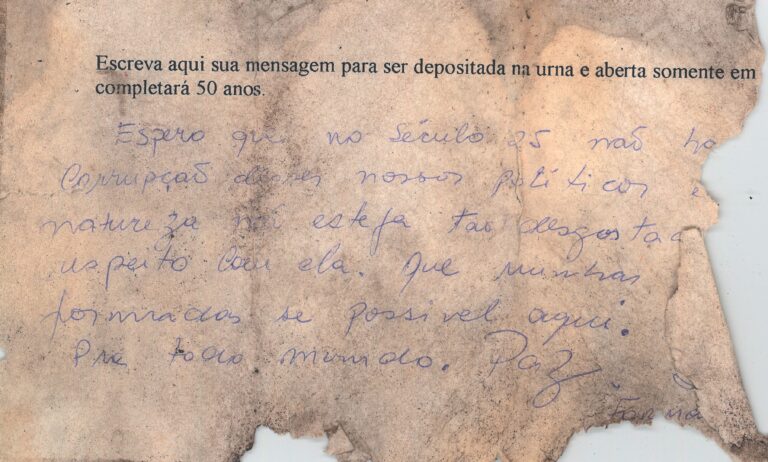 Escreva aqui sua mensagem para ser depositada na urna e aberta somente em
completará 50 anos.
Espero que no Século 25 não ha
Corrupção nossos políticos e
natureza esteja tão desgosta
respeito com ela. Que minhas
formradas se possivel aqui.
Pra todo mundo. Paz